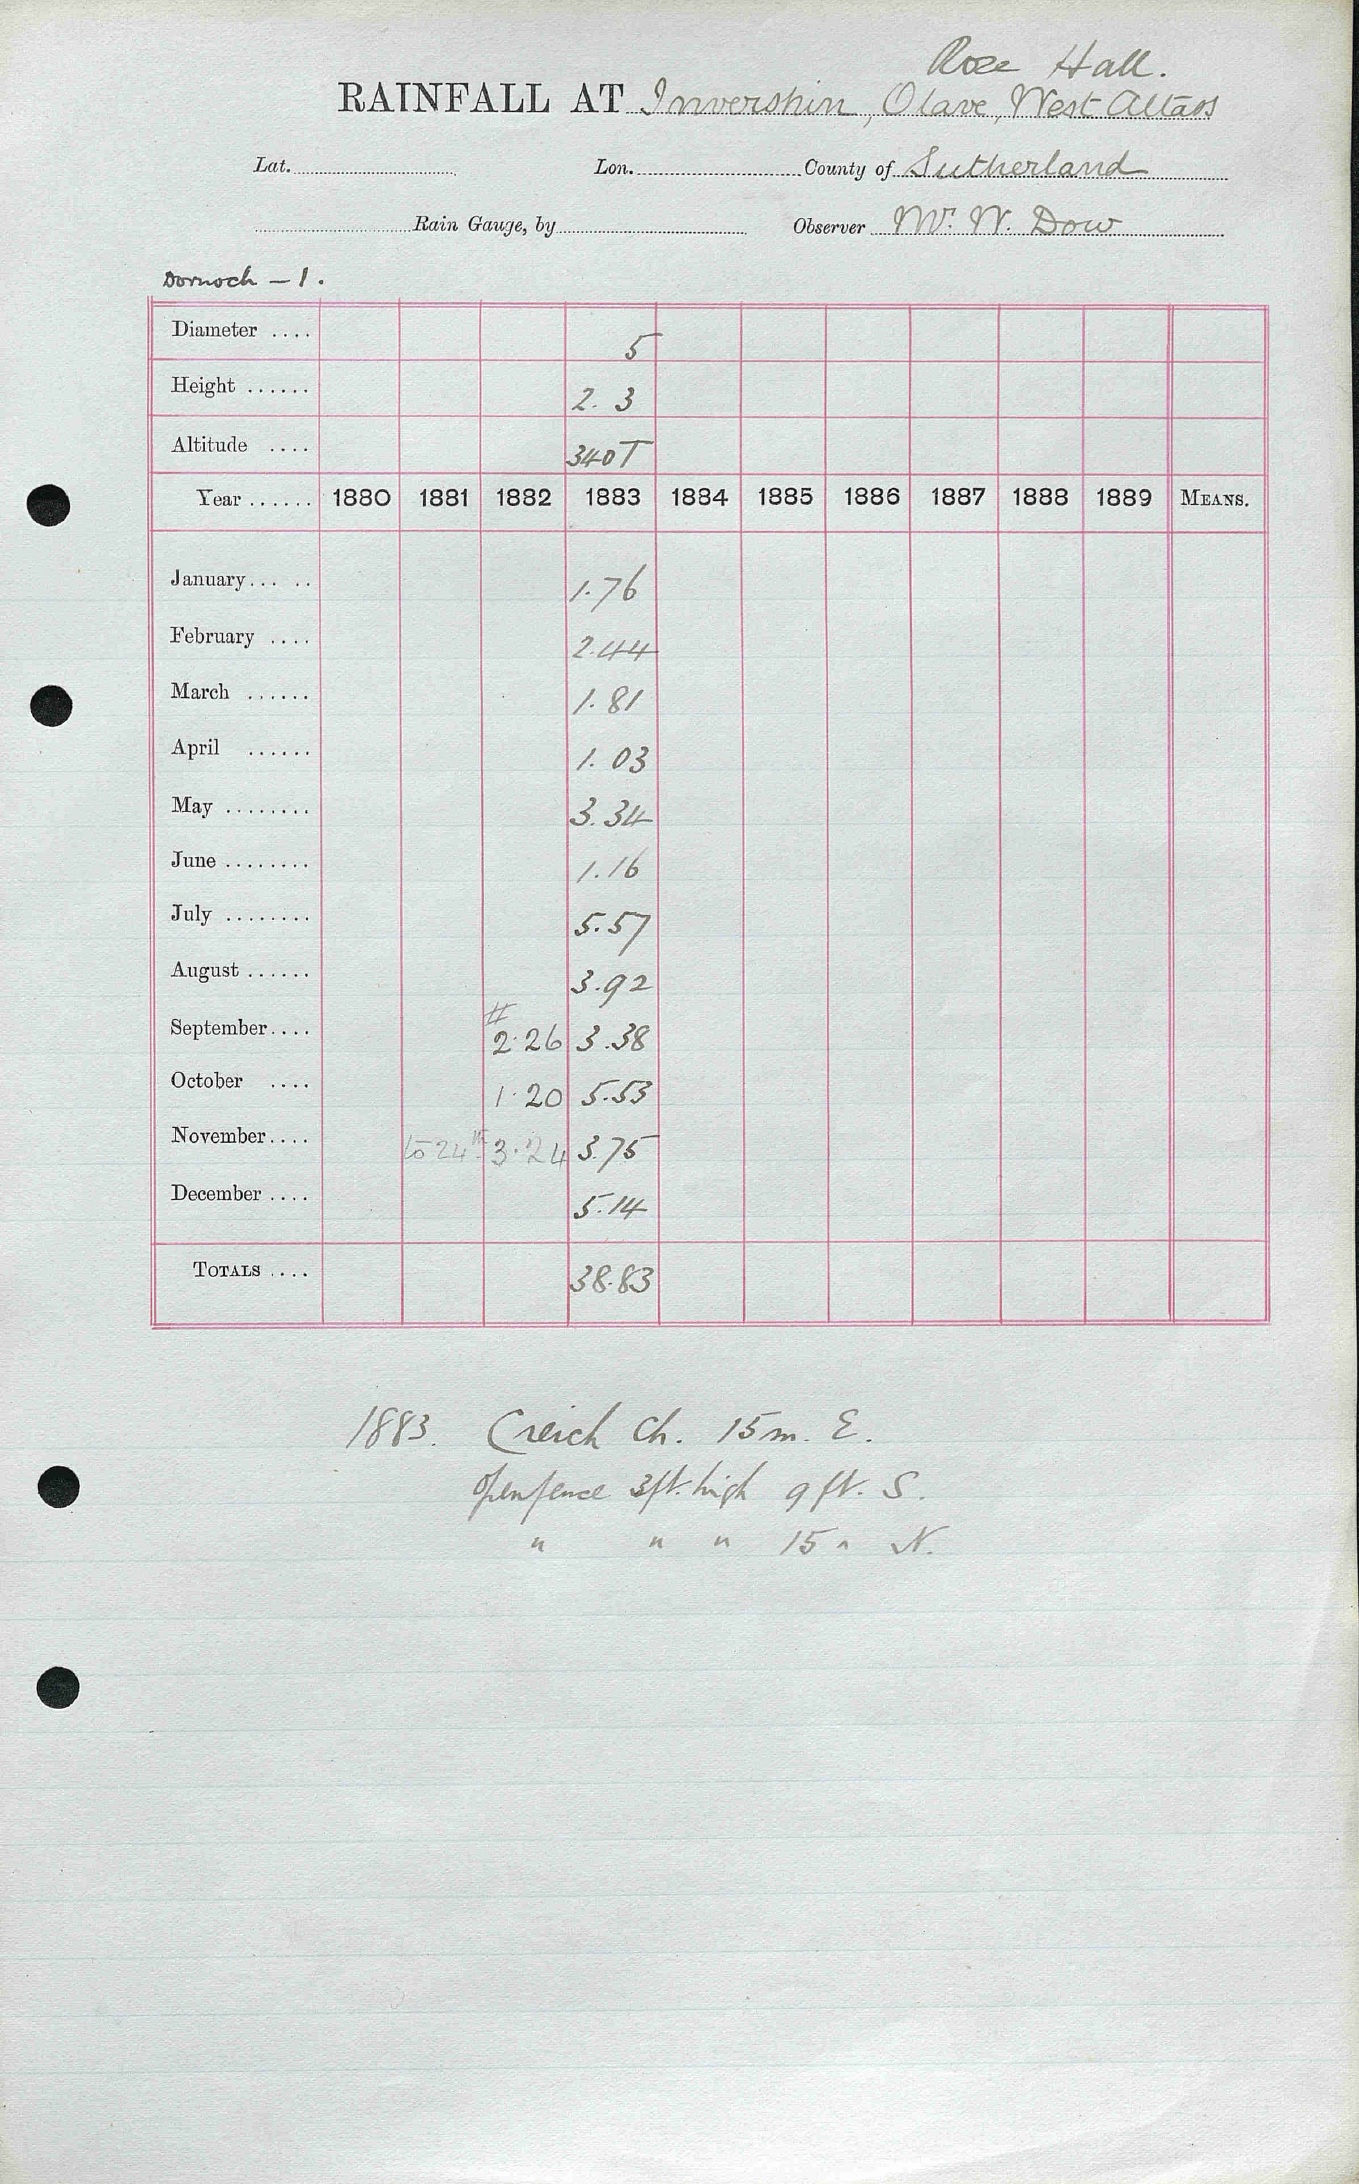 Rose Hall.
RAINFALL AT Invershin, Olave, West Altass
Lat. Lon. County of Sutherland
Rain Gauge, by Observer Mr. W. Dow
Dornoch – 1.
Diameter .... 5
Height ...... 2. 3
Altitude .... 340 T
Year ...... 1880 1881 1882 1883 1884 1885 1886 1887 1888 1889 MEANS.
January... .. 1.76
February .... 2.44
March ...... 1.81
April ...... 1.03
May ........ 3.34
June ........ 1.16
July ........ 5.57
August ...... 3.92
September.... # 2.26 3.38
October .... 1.20 5.53
November.... to 24th 3.24 3.75
December .... 5.14
TOTALS .... 38.83
1883. Creich Ch. 15m. E.
Open fence 3ft. high 9 ft. S.
" " " 15 " N.